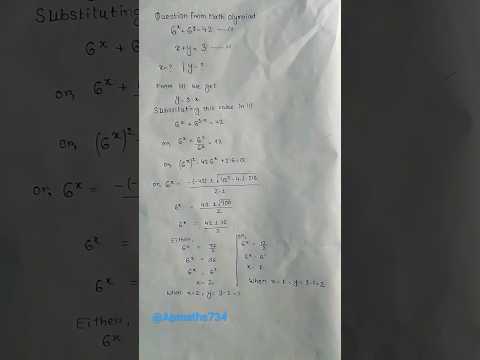 Question From Math Olympiad
6^x + 6^y = 42 —— (i)
x + y = 3 —— (ii)
x = ? | y = ?
From (ii) we get
y = 3 - x
Substituting this value in (i)
6^x + 6^3-x = 42
or, 6^x + 6^3/6^x = 42
or (6^x)^2 - 42 6^x + 216 = 0
or, 6^x = -(-42) ± √42^2 - 4.1.216 / 2.1
6^x = 42 ± √900 / 2
6^x = 42 ± 30 / 2
Either,
6^x = 72/2
6^x = 36
6^x = 6^2
x = 2
When x = 2, y = 3 - 2 = 1
or,
6^x = 12/2
6^x = 6^1
x = 1
When x = 1, y = 3 - 1 = 2
Substituting
6^x + 6
or, 6^x +
or, (6^x)^2
or, 6^x = -(-
6^x =
6^x =
Either,
6^x
@Apmaths734